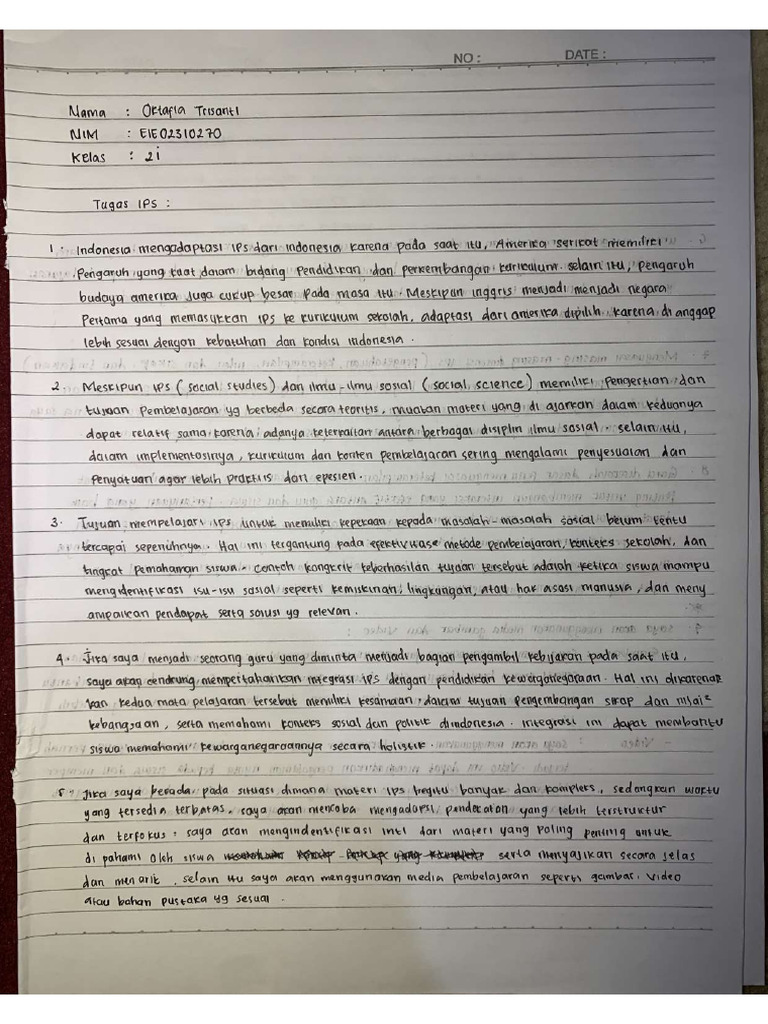 NO :
DATE :
Nama : Oktafia Trisanti
NIM : E1E02310270
Kelas : 2i
Tugas IPS :
1. Indonesia mengadaptasi IPS dari indonesia karena pada saat itu, Amerika serikat memiliki
Pengaruh yang kuat dalam bidang Pendidikan dan perkembangan kurikulum. selain itu, Pengaruh
budaya amerika Juga cukup besar Pada masa itu. Meskipun inggris menjadi menjadi negara
Pertama yang memasukkan IPS ke kurikulum sekolah, adaptasi dari amerika dipilih karena di anggap
lebih sesuai dengan kebutuhan dan kondisi indonesia.
2. Meskipun IPS (social studies) dan ilmu-ilmu sosial (social science) memiliki pengertian dan
tujuan Pembelajaran yg berbeda secara teoritis, muatan materi yang di ajarkan dalam keduanya
dapat relatif sama karena adanya keterkaitan antara berbagai disiplin ilmu sosial. selain itu,
dalam implementosinya, kurikulum dan konten pembelajaran sering mengalami penyesuaian dan
Penyatuan agar lebih praktis dan epesien.
3. Tujuan mempelajari IPS untuk memiliki kepekaan kepada masalah-masalah sosial belum tentu
tercapai sepenuhnya. Hal ini tergantung pada efektivitase metode pembelajaran, konteks sekolah, dan
tingkat pemahaman siswa. contoh kongkrit keberhasilan tujuan tersebut adalah ketika siswa mampu
mengidentifikasi isu-isu sosial seperti kemiskinan, lingkungan, atau hak asasi manusia, dan meny
ampaikan pendapat serta solusi yg relevan.
4. Jika saya menjadi seorang guru yang diminta menjadi bagian pengambil kebijakan pada saat itu,
saya akan cendrung mempertahankan integrasi IPS dengan pendidikan kewarganegaraan. Hal ini dikarenak
kan, kedua mata pelajaran tersebut memiliki kesamaan, dalam tujuan pengembangan sikap dan nilai²
kebangsaan, serta memahami konteks sosial dan politik diindonesia. integrasi ini dapat membantu
siswa memahami kewarganegaraannya secara holistik.
5. Jika saya berada pada situasi dimana materi IPS begitu banyak dan kompleks, sedangkan waktu
yang tersedia terbatas, saya akan mencoba mengadopsi pendekatan yang lebih terstruktur
dan terfokus. saya akan mengindentifikasi inti dari materi yang paling penting untuk
di pahami oleh siswa serta menyajikan secara jelas
dan menarik. selain itu saya akan menggunakan media pembelajaran seperti gambar, video
atau bahan pustaka yg sesuai.